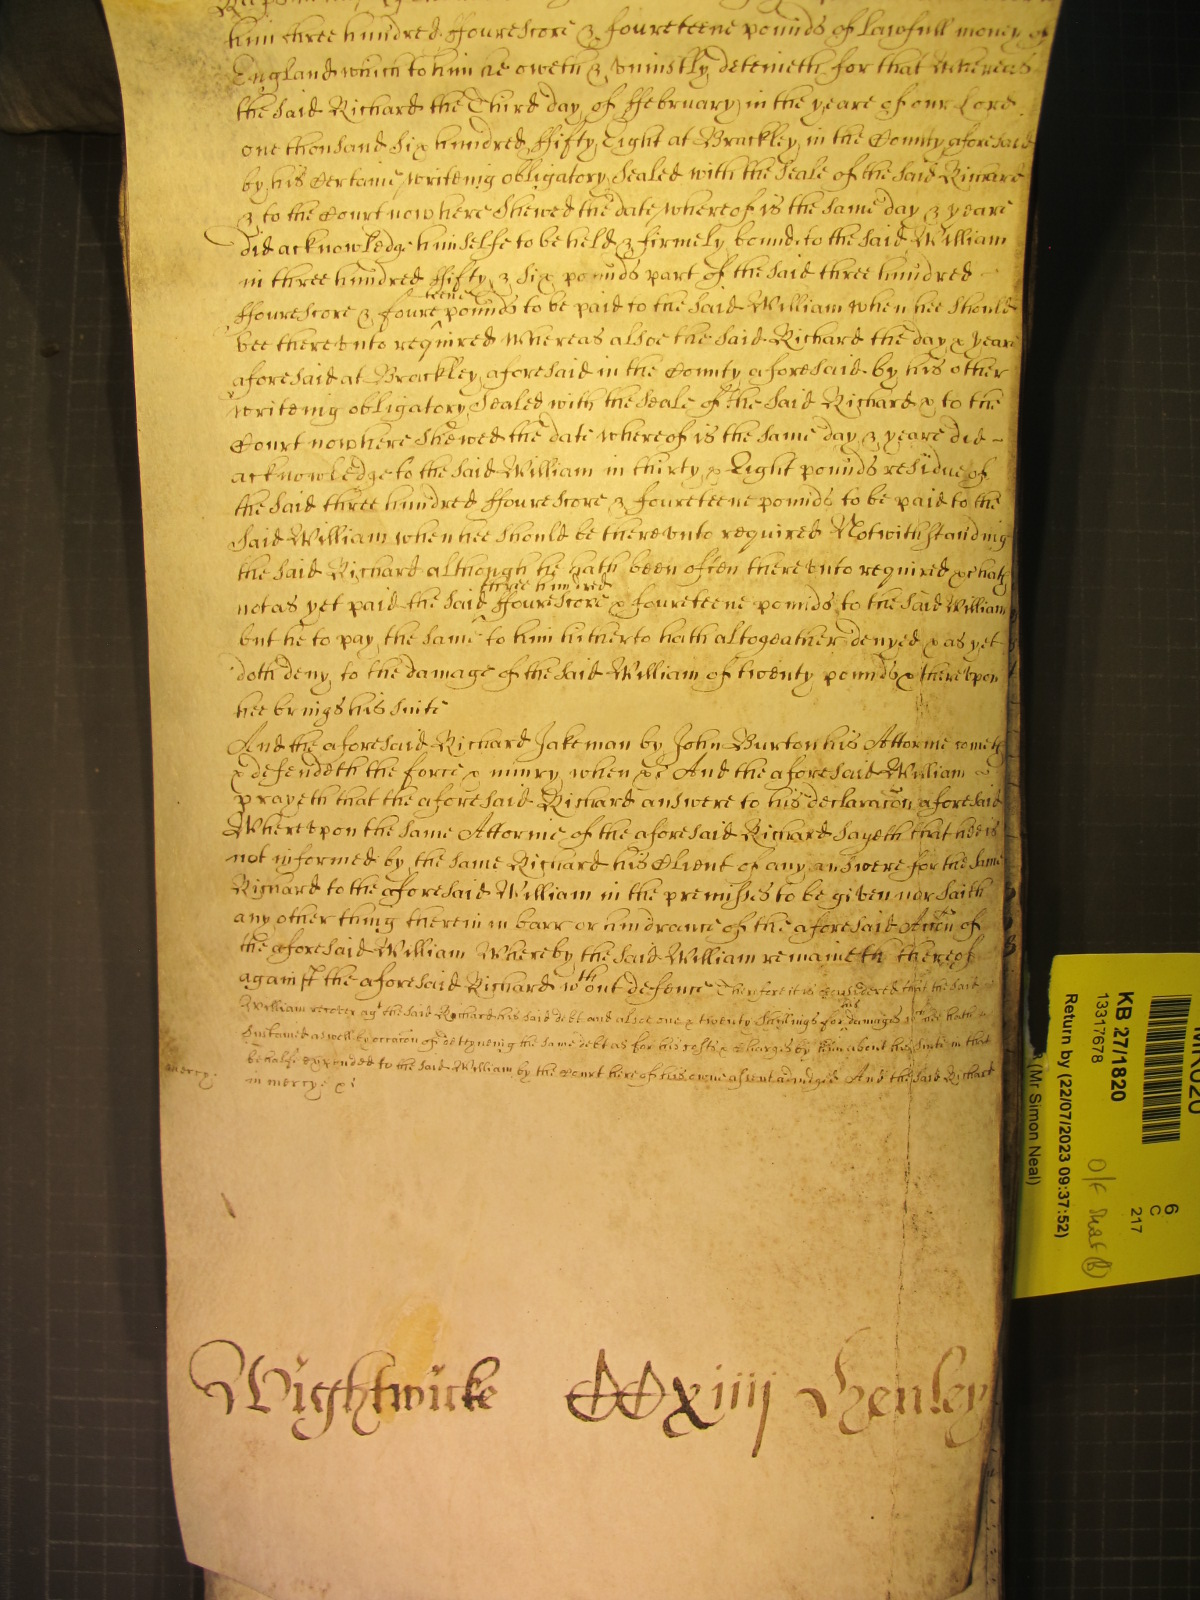 him three hundred ffourescore & foureteene pounds of lawfull money of
England which to him he oweth & uniustly deteineth for that whereas
the said Richard the Third day of ffebruary in the yeare of our Lord
one thousand six hundred ffifty Eight at Brackley in the County aforesaid
by his Certaine writeing obligatory Sealed with the Seale of the said Richard
& to the Court now here Shewed the date whereof is the same day & yeare
did acknowledge himselfe to be held & firmely bound to the said William
in three hundred ffifty & six pounds part of the said three hundred
ffourescore & foureteene pounds to be paid to the said William when hee should
bee thereunto required Whereas alsoe the said Richard the day & yeare
aforesaid at Brackley aforesaid in the County aforesaid by his other
writeing obligatory Sealed with the Seale of the said Richard & to the
Court now here Shewed the date whereof is the same day & yeare did
acknowledge to the said William in thirty & Eight pounds residue of
the said three hundred ffourescore & foureteene pounds to be paid to the
said William when hee should be thereunto required Notwithstanding
the said Richard although he hath been often thereunto required &c hath
not as yet paid the said three hundred ffourescore & foureteene pounds to the said William
but he to pay the same to him hitherto hath altogeather denyed & as yet
doth deny to the damage of the said William of twenty pounds & thereupon
hee brings his suite
And the aforesaid Richard Jakeman by John Burton his Attornie cometh
& defendeth the force & iniury when &c And the aforesaid William
prayeth that the aforesaid Richard answere to his declaracon aforesaid
Whereupon the same Attornie of the aforesaid Richard sayeth that hee is
not informed by the same Richard his Client of any answere for the same
Richard to the aforesaid William in the premisses to be given nor saieth
any other thing therein in barr or hindrance of the aforesaid Accon of
the aforesaid William Whereby the said William remaineth thereof
against the aforesaid Richard wthout defence Therefore it is considered that the said
William recover agt the said Richard his said debt and alsoe one & twenty shillings for his damages wch hee hath
susteined aswell by occacon of deteyneing the same debt as for his costs & charges by him about his suite in that
behalfe expended to the said William by the Court here of his owne assent adiudged And the said Richard
in mercy &c
mercy
Wightwicke CCxiiij Henley
KB 27/1820
13317678
Return by (22/07/2023 09:37:52)
(Mr Simon Neal)
6
C
217